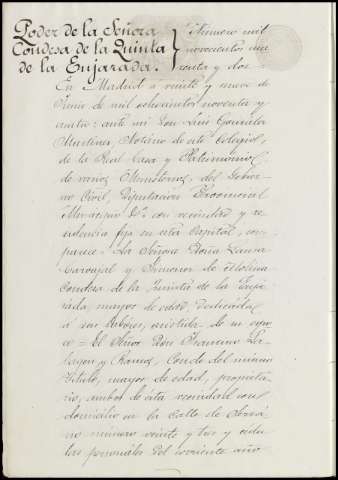 Poder de la Señora
Condesa de la Quinta
de la Enjarada.
Número mil
novecientos no
venta y dos
En Madrid a veinte y nueve de
Junio de mil ochocientos noventa y
cuatro: ante mí Don
Martinez, Notario de este Colegio,
de la Real Casa y Patrimonio,
de varios Ministerios, del Gobier
no Civil, Diputacion Provincial
con vecindad y re
sidencia fija en esta Capital, com
parece = La Señora Doña Laura
Carvajal y de Molina
Condesa de la Quinta de la Enja
rada, mayor de edad, dedicada
á sus labores, asistida de su espo
so = El Señor Don Francisco
y Conde del mismo
título, mayor de edad, propieta
rio, ambos de esta vecindad con
domicilio en la Calle de Serra
no número veinte y tres y cédu
las personales del corriente año